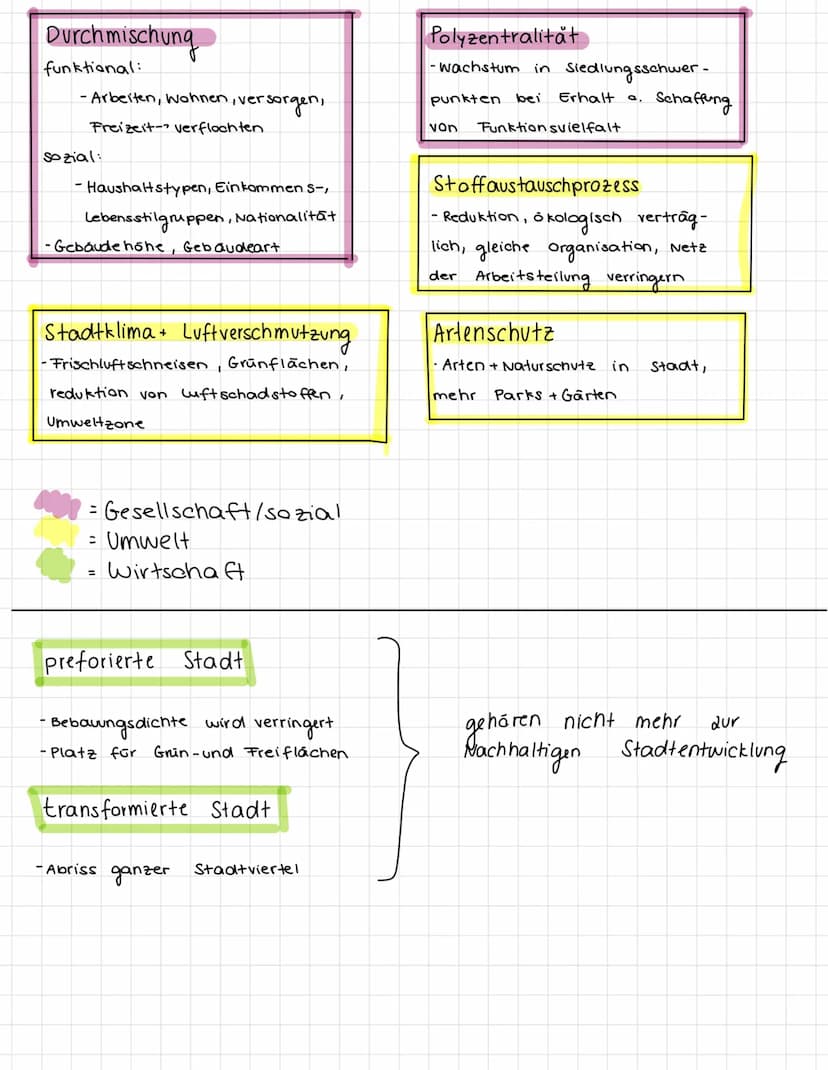 Durchmischung
funktional:
- Arbeiten, Wohnen, versorgen,
Freizeit → verflochten
sozial:
- Haushaltstypen, Einkommens-,
Lebensstilgruppen, Nationalität
- Gebäudehöhe, Gebäudeart
Polyzentralität
- Wachstum in Siedlungsschwer-
punkten bei Erhalt o. Schaffung
von Funktionsvielfalt
Stoffaustauschprozess
- Reduktion, ökologisch verträg-
lich, gleiche Organisation, Netz
der Arbeitsteilung verringern
Stadtklima + Luftverschmutzung
- Frischluftschneisen, Grünflächen,
reduktion von Luftschadstoffen,
Umweltzone
Artenschutz
- Arten + Naturschutz in Stadt,
mehr Parks + Gärten
= Gesellschaft/sozial
= Umwelt
= Wirtschaft
preforierte Stadt
- Bebauungsdichte wird verringert
- Platz für Grün- und Freiflächen
transformierte Stadt
- Abriss ganzer Stadtviertel
gehören nicht mehr zur
Nachhaltigen Stadtentwicklung